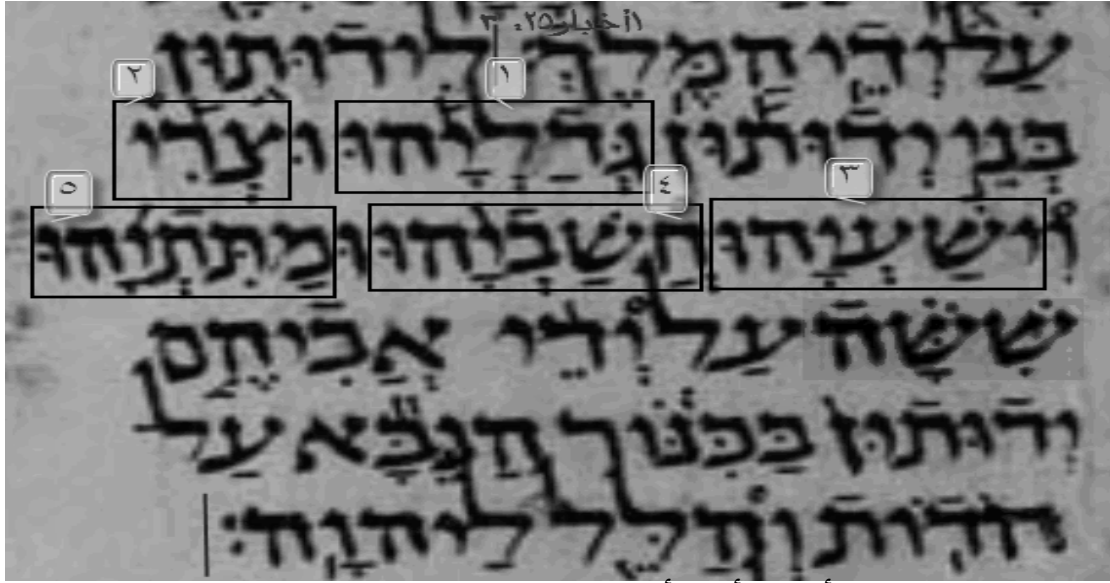 ١أخبار٢٥: ٣
עַל יְדֵי הַמֶּלֶךְ לִידוּתוּן
١ ٢
בְּנֵי יְדוּתוּן גְּדַלְיָהוּ וּצְרִי
٣ ٤ ٥
וִישַׁעְיָהוּ חֲשַׁבְיָהוּ וּמַתִּתְיָהוּ
שִׁשָּׁה עַל יְדֵי אֲבִיהֶם
יְדוּתוּן בַּכִּנּוֹר הַנִּבָּא עַל
הֹדוֹת וְהַלֵּל לַיהוָה׃